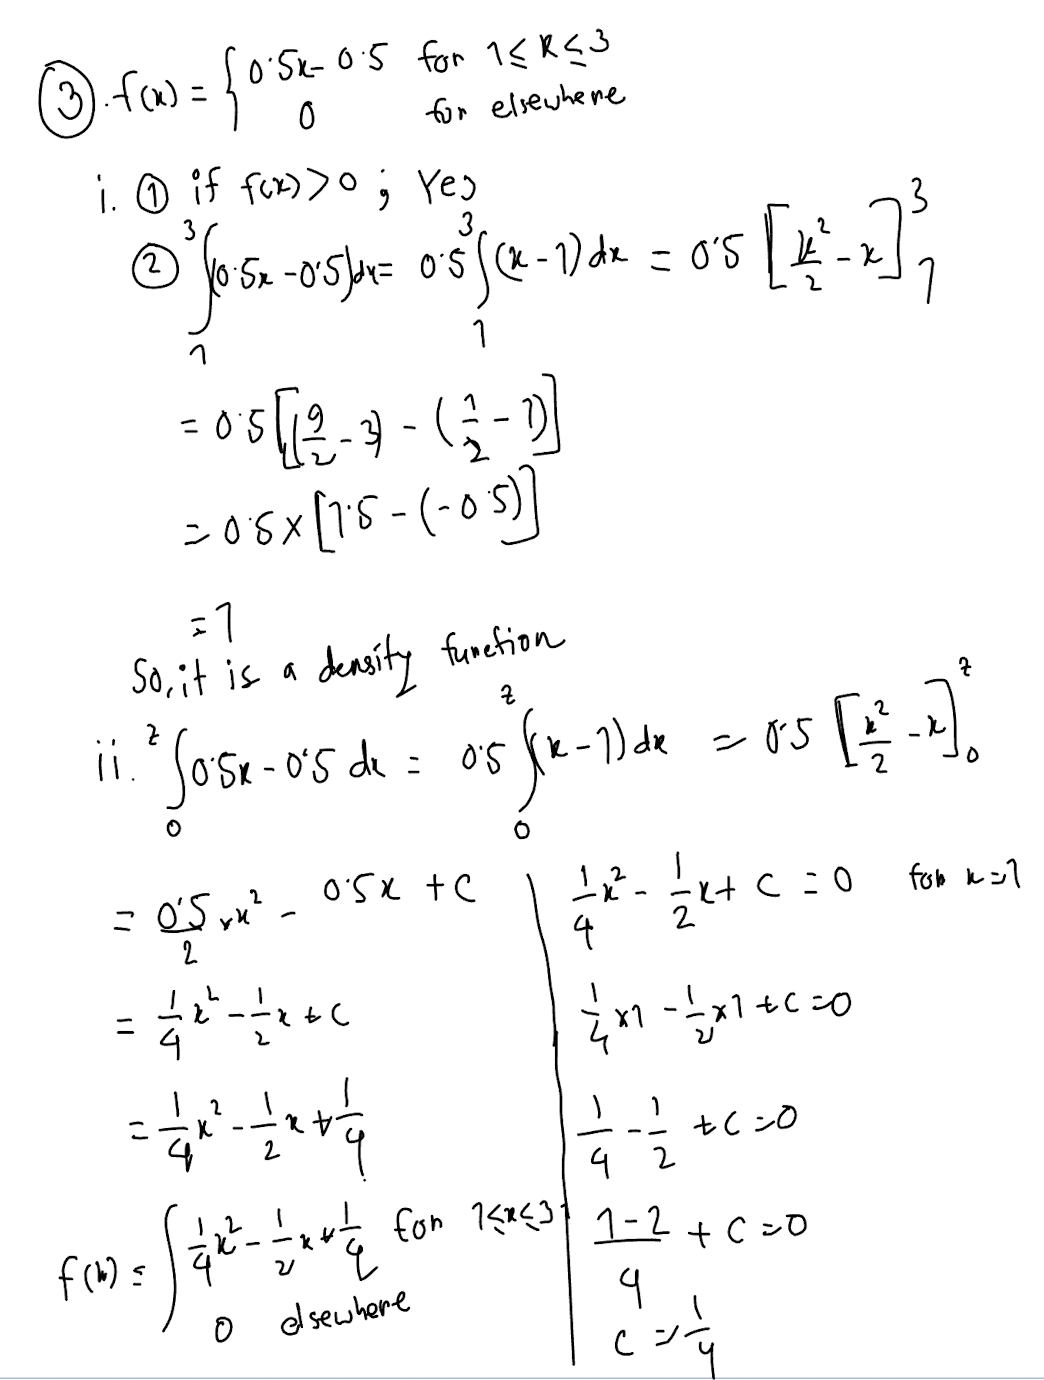 ③. f(x) = { 0.5x - 0.5 for 1 ≤ x ≤ 3
0 for elsewhere
i. ① if f(x) > 0 ; Yes
② ∫₁³ (0.5x - 0.5) dx = 0.5 ∫₁³ (x - 1) dx = 0.5 [x²/2 - x]₁³
= 0.5 [(9/2 - 3) - (1/2 - 1)]
= 0.5 × [1.5 - (-0.5)]
= 1
So, it is a density function
ii. ∫₀ᶻ 0.5x - 0.5 dx = 0.5 ∫₀ᶻ (x - 1) dx = 0.5 [x²/2 - x]₀ᶻ
= 0.5/2 × x² - 0.5x + C
= 1/4 x² - 1/2 x + C
= 1/4 x² - 1/2 x + 1/4
f(x) = { 1/4 x² - 1/2 x + 1/4 for 1 ≤ x ≤ 3
0 elsewhere
1/4 x² - 1/2 x + C = 0 for x = 1
1/4 × 1 - 1/2 × 1 + C = 0
1/4 - 1/2 + C = 0
1-2/4 + C = 0
C = 1/4